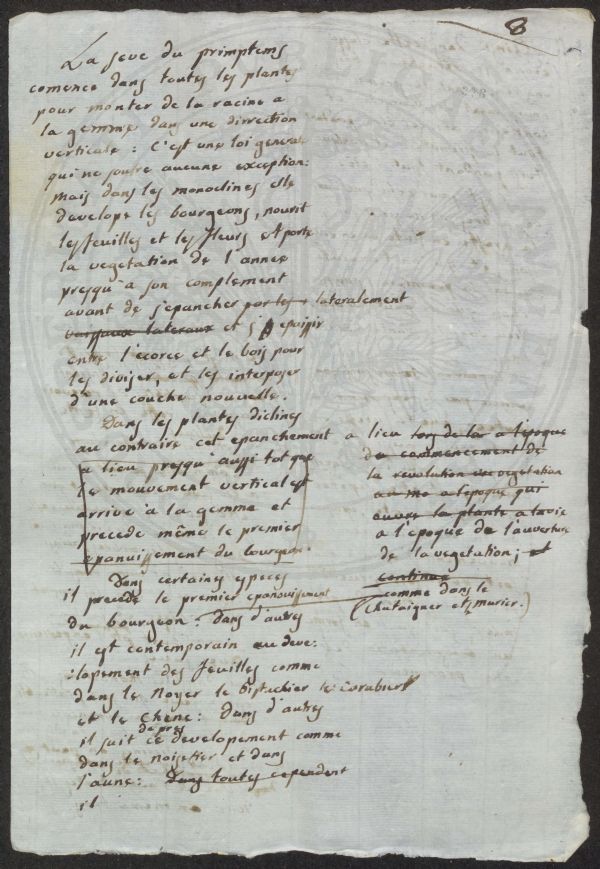 8
La seve du primptems
comence dans toutes les plantes
pour monter de la racine a
la gemme dans une dirrection
verticale : c'est une loi generale
qui ne soufre aucune exception:
mais dans les monoclines elle
develope les bourgeons, nourit
les feuilles et les fleurs et porte
la vegetation de l'annee
presqu'a son complement
avant de s'epancher par les lateralement
vaisseaux lateraux et s'epaissir
entre l'ecorce et le bois pour
les diviser, et les interposer
d'une couche nouvelle.
Dans les plantes diclines
au contraire cet epanchement
a lieu presqu'aussi tot que
le mouvement vertical est
arrive a la gemme et
precede même le premier
epanuissement du bourgeon
a lieu lors de la a l'epoque
du commencement de
la revolution de vegetation
au mo a l'epoque qui
ouvre la plante a la vie
a l'epoque de l'auverture
de la vegetation; et
continue
comme dans le
chataigner et murier.)
Dans certaines especes
il precede le premier epanouissement
du bourgeon: dans d'autres
il est contemporain au deve:
:lopement des feuilles comme
dans le noyer le pistachier le
et le chene: Dans d'autres
de pres
il suit ce developement comme
dans le noisetier et dans
l'aune: Dans toutes cependent
il